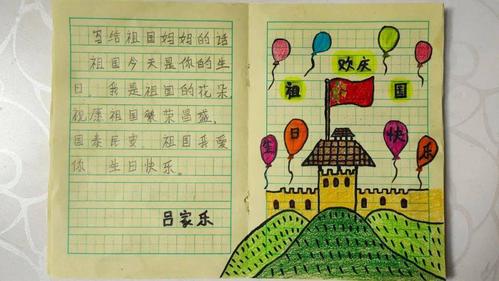 写给祖国妈妈的话
祖国今天是你的生
日，我是祖国的花朵，
祝愿祖国繁荣昌盛，
国泰民安，祖国我爱
你，生日快乐。
吕家乐
欢庆
祖国
生日快乐